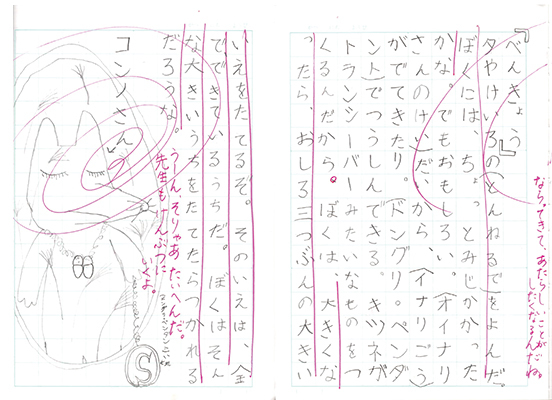 『べんきょう』
夕やけいろの(とんねるで)をよんだ。
ぼくには、ちょっとみじかかった
かな。でもおもしろい。(オイナリ
さんのけいだ)だから、(イナリごう
がでてきたり。ドングリ。ペンダ
ント)でつうしんできる。キツネが
トランシーバーみたいなものをつ
くるんだから。ぼくは、大きくな
ったら、おしろ三つぶんの大きい
なら。できて、あたらしいことが
したくなるんだね。
いえをたてるぞ。そのいえは、金
でできているうちだ。ぼくはそん
な大きいうちをたてたらつかれる
だろうな。
うん、そりゃあたいへんだ。
先生もけんぶつに
いくよ。
コンノさん
S